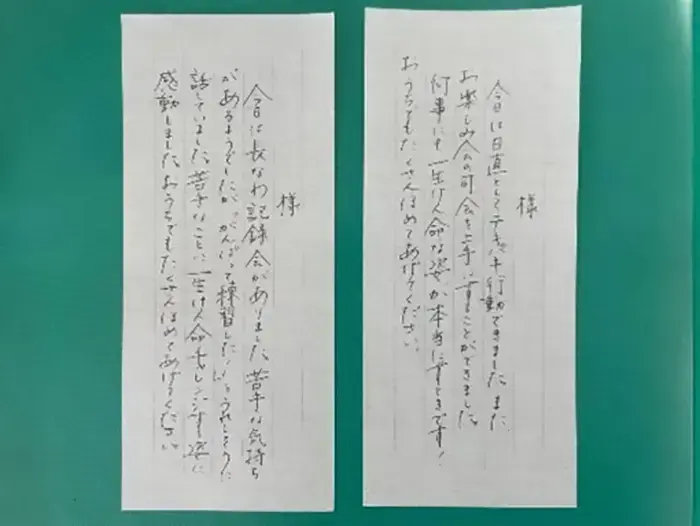 様
今日は日直としてテキパキ行動できました。また、
お楽しみ会の司会を上手にすることができました。
何事にも一生けん命な姿が本当にすてきです!
おうちでもたくさんほめてあげてください。
様
今日は長なわ記録会がありました。苦手な気持ち
があるようでしたが、「がんばって練習した!」とうれしそうに
話していました。苦手なことに一生けん命チャレンジする姿に
感動しました。おうちでもたくさんほめてあげてください。